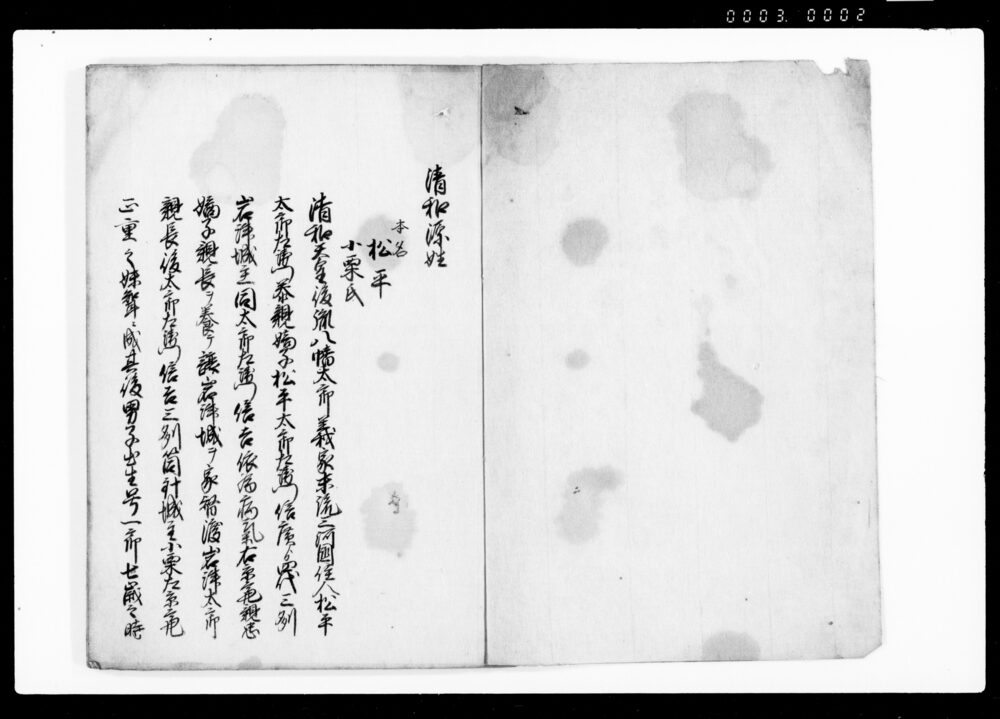 0003. 0002
清和源姓
本名
松平
小栗氏
清和天皇後胤八幡太郎義家末流三河國住人松平
太郎左衛門泰親嫡子松平太郎左衛門信廣ゟ四代三州
岩津城主同太郎左衛門信吉依為病氣右京亮親忠
嫡子親長ヲ養テ譲岩津城ヲ家督渡岩津太郎
親長後太郎左衛門信吉三州筒針城主小栗左京亮
正重之妹聟ニ成其後男子出生号一郎七歳之時